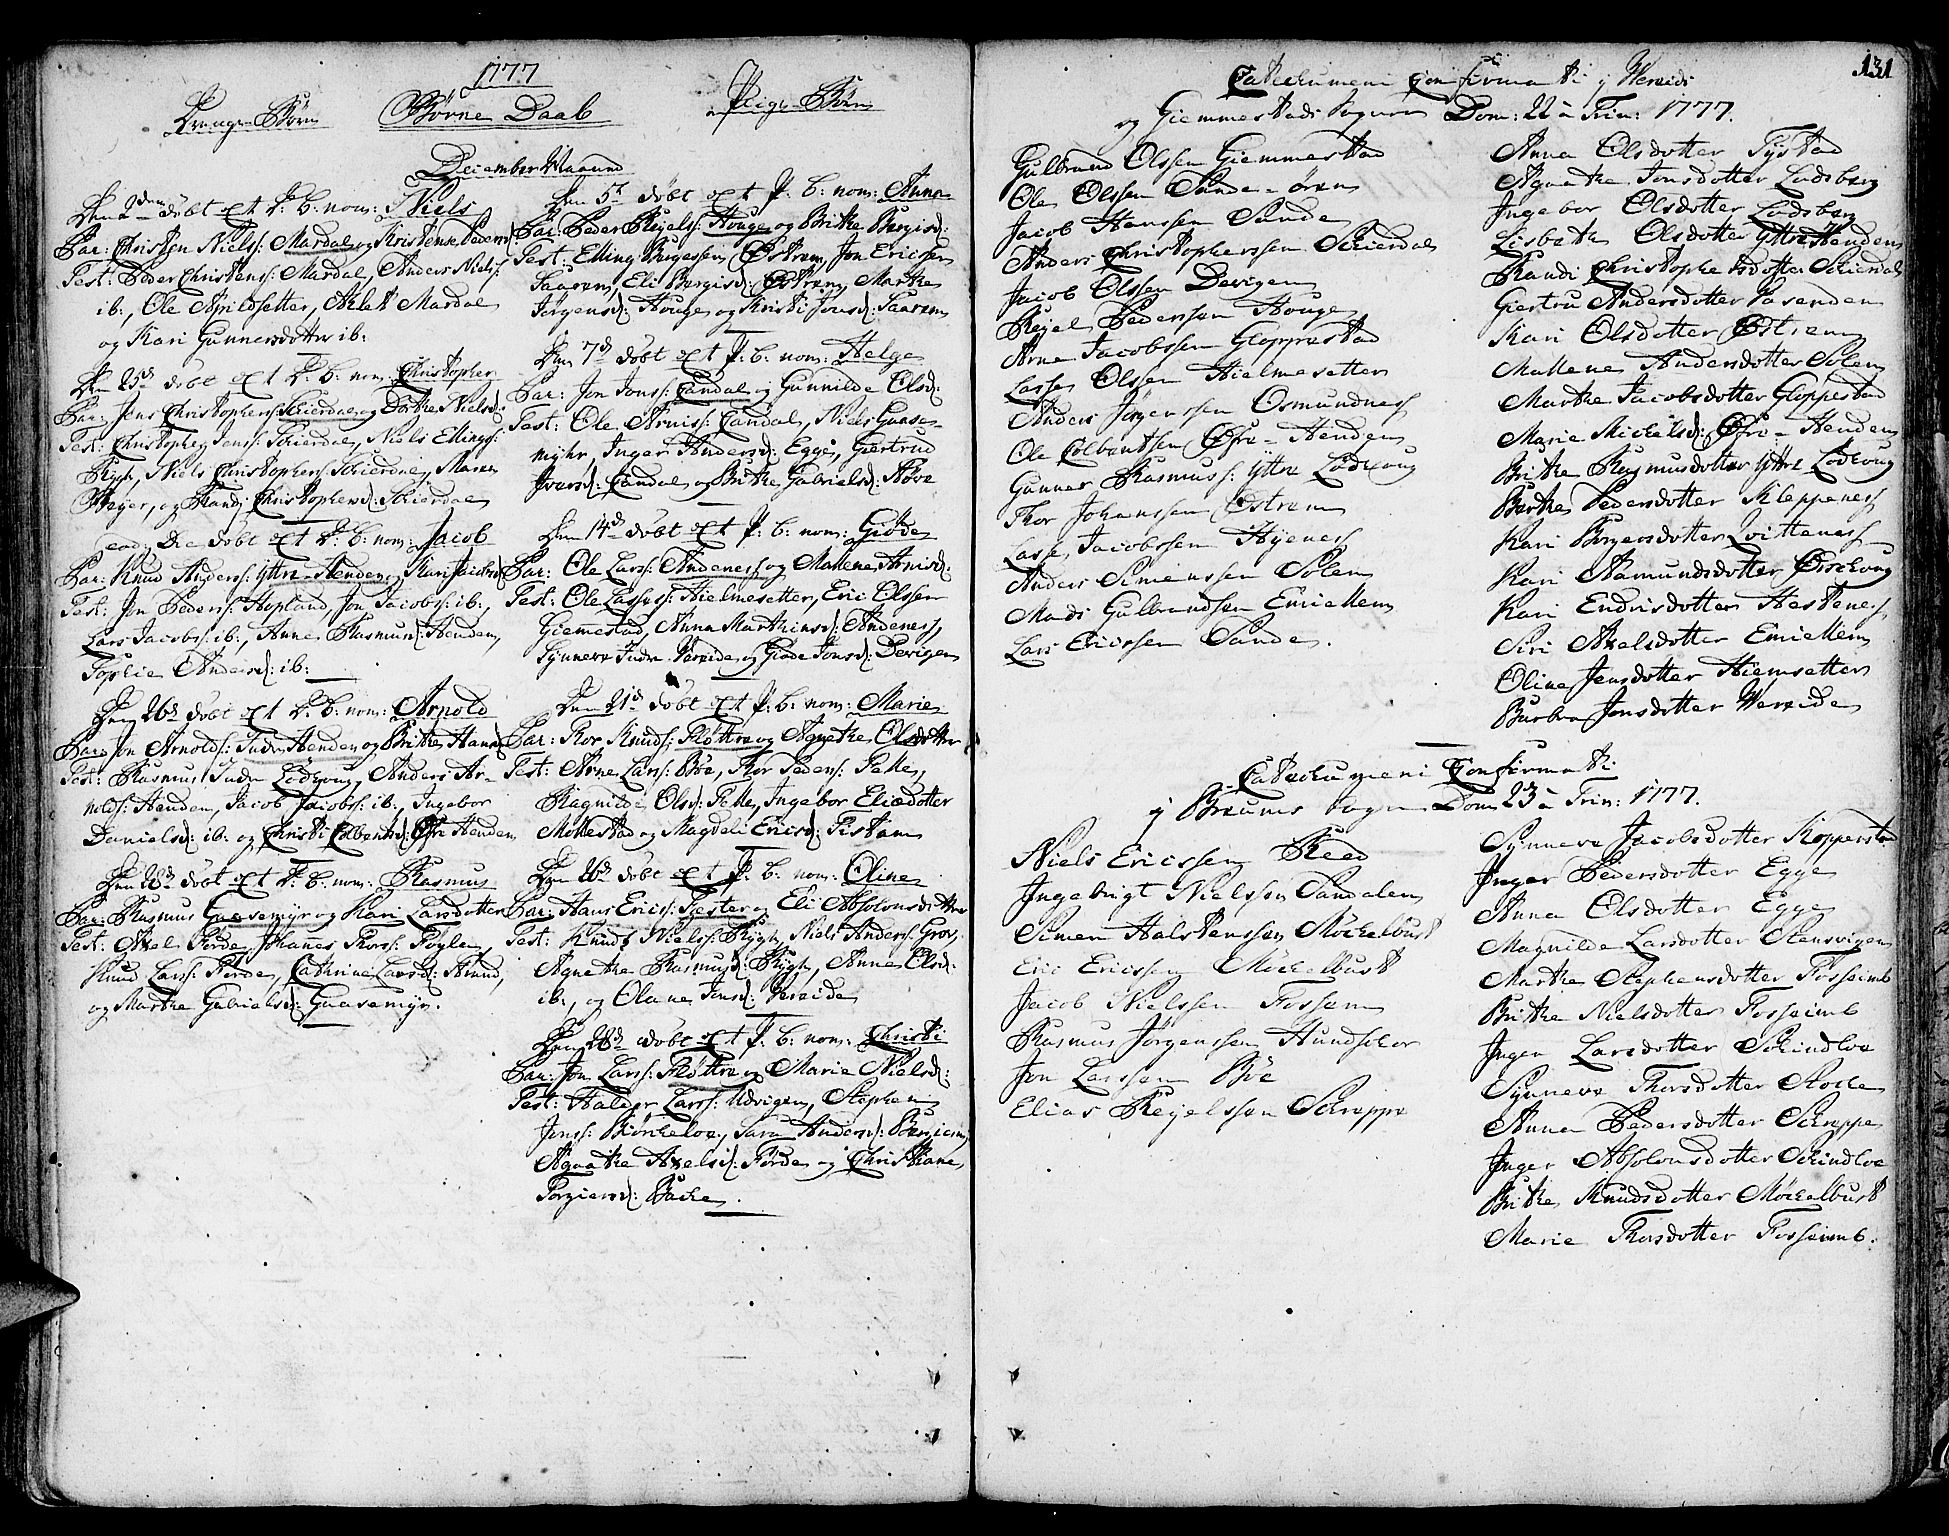 1777
Drenge Børn
Børne Daab
Pige Børn
December Maaned
Den 2den døbt et D: B: nom: Niels
Par: Christen Niels: Mardal og Kristense Peders
Test: Peder Christens: Mardal, Anders Niels:
ib:, Ole Apildsetter, Ablet Mardal
og Kari Gunnersdotter ib:
Den 25d døbt et D: B: nom: Christopher
Par: Jens Christophers: Schierdal og Dorthe Nielsd:
Test: Christopher Jens: Schierdal, Niels Ellings:
Rygh, Niels Christophers: Schierdal, Maren
Meyer, og Randi Christophersd: Schierdal
eod: die døbt et D: B: nom: Jacob
Par: Knud Anders: Yttre-Henden, Kari Jacobsd:
Test: Jon Peders: Hopland, Jon Jacobs: ib:,
Lars Jacobs: ib:, Anne Rasmusd: Henden,
Sophie Andersd: ib:
Den 26d døbt et D: B: nom: Arnold
Par: Jon Arnolds: Indre Henden og Brithe Hansd:
Test: Rasmus Indre Lødevug, Anders Ar-
nolds: Henden, Jacob Jacobs: ib:, Ingebor
Danielsd: ib: og Christi Colbentsd: Øfre Henden
Den 28d døbt et D: B: nom: Rasmus
Par: Rasmus Gaasemyr og Kari Larsdotter
Test: Axel Førde, Johanes Thors: Fogle,
Knud Lars: Førde, Cathrine Larsd: Strand,
og Marthe Gabrielsd: Gaasemyr.
Den 5t døbt et P: B: nom: Anna
Par: Peder Rejels: Houge og Brithe Børgisd:
Test: Elling Børgessen Østrem, Jon Ericsen
Saarem, Eli Børgisd: Østrem, Marthe
Jørgensd: Houge og Kristi Jonsd: Saarem
Den 7d døbt et P: B: nom: Helge
Par: Jon Jons: Eandal og Gunnilde Olsd:
Test: Ole Arnis: Eandal, Niels Gaase-
myhr, Inger Andersd: Egge, Giertrud
Iversd: Eandal og Brithe Gabrielsd: Røve
Den 14d døbt et P: B: nom: Giøde
Par: Ole Lars: Andenes og Mallene Arnisd:
Test: Ole Lasses: Hielmesetter, Eric Olssen
Giemestad, Anna Marthinsd: Andenes,
Synneve Indre Vereide og Giøde Jonsd: Devigen
Den 21d døbt et P: B: nom: Marie
Par: Thor Knuds: Fløttre og Agnethe Olsdotter
Test: Arne Lars: Bøe, Thor Peders: Felle,
Ragnilde Olsd: Felle, Ingebor Eliædotter
Mollestad og Magdeli Ericsd: Fistam
Den 26d døbt et P: B: nom: Oline
Par: Hans Erics: Tæster og Eli Absolonsdotter
Test: Knud Niels: Rygh, Niels Anders: Grov,
Agnethe Rasmusd: Rygh, Anne Olsd:
ib:, og Olane Jonsd: Vereide
Den 28d døbt et P: B: nom: Christi
Par: Jon Lars: Fløttre og Marie Nielsd:
Test: Haldor Lars: Udvigen, Stephen
Jens: Biørkeloe, Sara Andersd: Bergiem,
Agnethe Axelsd: Førde og Christiane
Torgiersd: Backe.
131
Catechumeni Confirmati i Wereids
og Giemmestads Sogner Dom: 22 à Trin: 1777.
Gulbrand Olssen Giemmestad
Ole Olssen Sande-ørens
Jacob Hanssen Sande
Anders Christopherssen Schierdal
Jacob Olssen Devigen
Rejel Pederssen Houge
Arne Jacobssen Gloppestad
Lasse Olssen Hielmesetter
Anders Jørgenssen Osmundnes
Ole Colbentsen Øfre-Henden
Gunner Rasmus: Yttre Lødevug
Thor Johanssen Østrem
Lasse Jacobssen Hyenes
Anders Simenssen Solem
Mads Gulbrandsen Emiellem
Lars Ericssen Sande.
Anna Olsdotter Tystad
Agnethe Jonsdotter Lodsberg
Ingebor Olsdotter Lodsberg
Lisbethe Olsdotter Yttre Henden
Randi Christophersdotter Schierdal
Giertru Andersdotter Vasenden
Kari Olsdotter Østrem
Mallene Andersdotter Solem
Marthe Jacobsdotter Gloppestad
Marie Michelsd: Øfre-Henden
Brithe Rasmusdotter Yttre Lødevug
Barthe Pedersdotter Kleppenes
Kari Børgersdotter Qvittenes
Kari Aamundsdotter Ørschoug
Kari Endrisdotter Hestenes
Siri Axelsdotter Emiellem
Oline Jensdotter Hiemsetter
Barbra Jonsdotter Wereide
Catechumeni Confirmati
i Breums Sogn Dom: 23 à Trin: 1777.
Niels Ericssen Reed
Ingebrigt Nielssen Sandalen
Simen Halstenssen Møckelbust
Eric Ericssen Møckelbust
Jacob Nielssen Fossem
Rasmus Jørgenssen Hundscher
Jon Larssen Bøe
Elias Rejelssen Schreppe
Synneva Jacobsdotter Kopperstad
Inger Pedersdotter Egge
Anna Olsdotter Egge
Magnilde Larsdotter Stensvigen
Marthe Stephensdotter Fosseimb
Brithe Nielsdotter Fosseimb
Inger Larsdotter Schindloe
Synneve Thorsdotter Stocke
Anna Pedersdotter Schreppe
Inger Absolonsdotter Schindloe
Brithe Knudsdotter Møckelbust
Marie Thorsdotter Fosseimb.